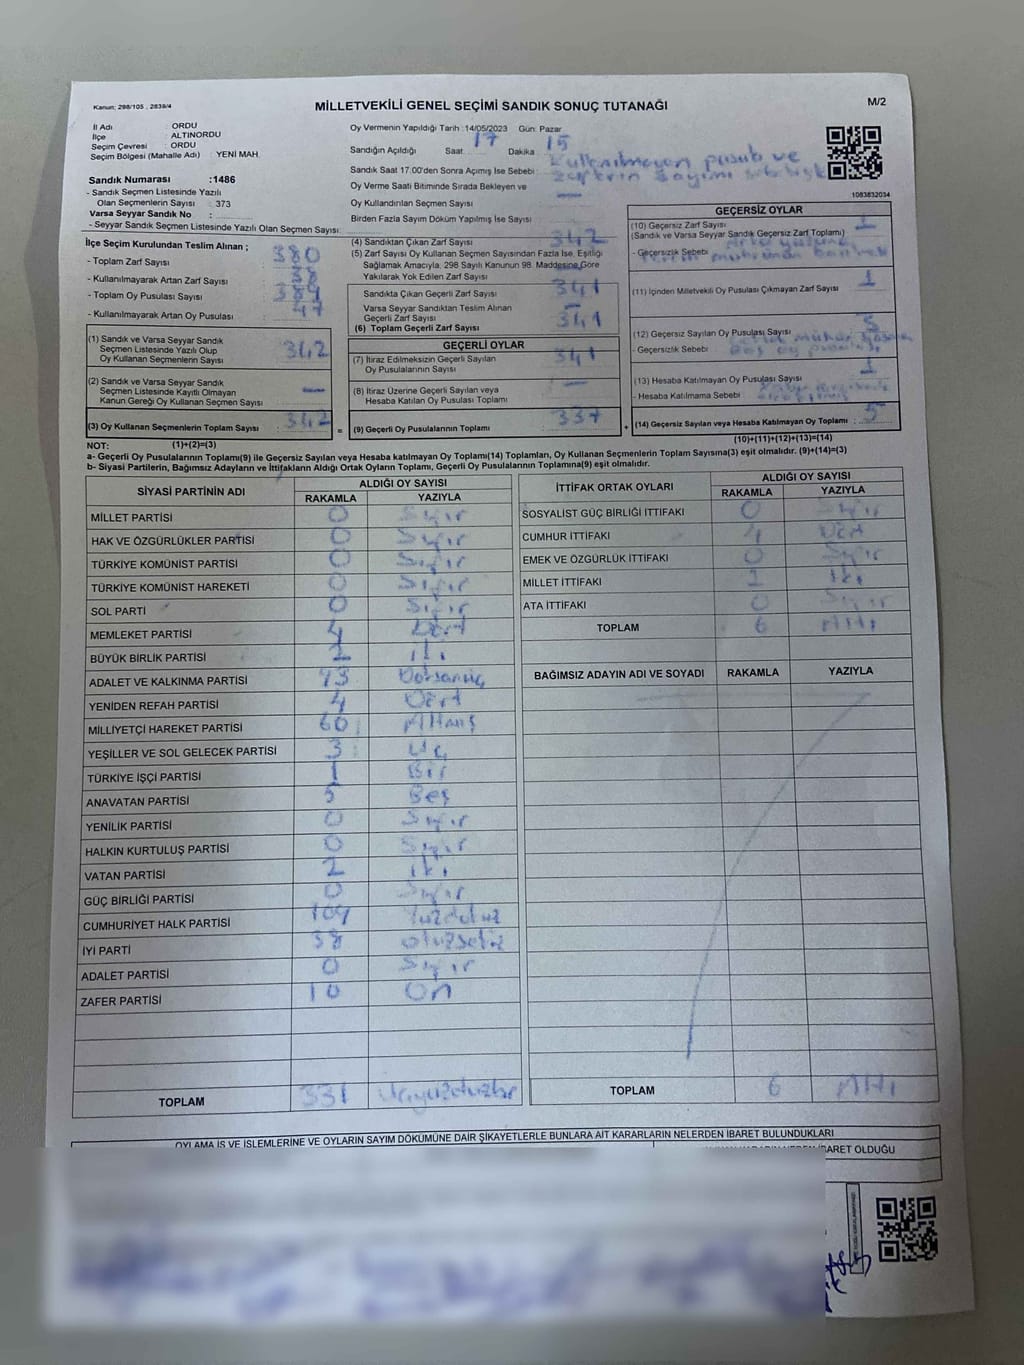 Kanun; 298/105 , 2839/4
MİLLETVEKİLİ GENEL SEÇİMİ SANDIK SONUÇ TUTANAĞI
M/2
İl Adı : ORDU
İlçe : ALTINORDU
Seçim Çevresi : ORDU
Seçim Bölgesi (Mahalle Adı) : YENİ MAH.
Sandık Numarası :1486
- Sandık Seçmen Listesinde Yazılı
Olan Seçmenlerin Sayısı : 373
Varsa Seyyar Sandık No :
- Seyyar Sandık Seçmen Listesinde Yazılı Olan Seçmen Sayısı:
Oy Vermenin Yapıldığı Tarih :14/05/2023 Gün: Pazar
Sandığın Açıldığı Saat 17 Dakika 15
Sandık Saat 17.00'den Sonra Açımış İse Sebebi : Kullanılmayan pusula ve
zarfların sayımı
Oy Verme Saati Bitiminde Sırada Bekleyen ve
Oy Kullandırılan Seçmen Sayısı —
Birden Fazla Sayım Döküm Yapılmış İse Sayısı :
1083832034
İlçe Seçim Kurulundan Teslim Alınan ;
- Toplam Zarf Sayısı : 380
- Kullanılmayarak Artan Zarf Sayısı : 38
- Toplam Oy Pusulası Sayısı : 389
- Kullanılmayarak Artan Oy Pusulası : 47
(1) Sandık ve Varsa Seyyar Sandık
Seçmen Listesinde Yazılı Olup
Oy Kullanan Seçmenlerin Sayısı : 342
(2) Sandık ve Varsa Seyyar Sandık
Seçmen Listesinde Kayıtlı Olmayan
Kanun Gereği Oy Kullanan Seçmen Sayısı : —
(3) Oy Kullanan Seçmenlerin Toplam Sayısı : 342
(4) Sandıktan Çıkan Zarf Sayısı : 342
(5) Zarf Sayısı Oy Kullanan Seçmen Sayısından Fazla İse, Eşitliği
Sağlamak Amacıyla, 298 Sayılı Kanunun 98. Maddesine Göre
Yakılarak Yok Edilen Zarf Sayısı
Sandıkta Çıkan Geçerli Zarf Sayısı : 341
Varsa Seyyar Sandıktan Teslim Alınan
Geçerli Zarf Sayısı : —
(6) Toplam Geçerli Zarf Sayısı : 341
GEÇERLİ OYLAR
(7) İtiraz Edilmeksizin Geçerli Sayılan
Oy Pusulalarının Sayısı : 341
(8) İtiraz Üzerine Geçerli Sayılan veya
Hesaba Katılan Oy Pusulası Toplamı : —
= (9) Geçerli Oy Pusulalarının Toplamı : 337
GEÇERSİZ OYLAR
(10) Geçersiz Zarf Sayısı : 1
(Sandık ve Varsa Seyyar Sandık Geçersiz Zarf Toplamı)
- Geçersizlik Sebebi :
(11) İçinden Milletvekili Oy Pusulası Çıkmayan Zarf Sayısı : 1
(12) Geçersiz Sayılan Oy Pusulası Sayısı
- Geçersizlik Sebebi : Boş oy pusulası
(13) Hesaba Katılmayan Oy Pusulası Sayısı : 1
- Hesaba Katılmama Sebebi :
+ (14) Geçersiz Sayılan veya Hesaba Katılmayan Oy Toplamı : 5
NOT: (1)+(2)=(3)
(10)+(11)+(12)+(13)=(14)
a- Geçerli Oy Pusulalarının Toplamı(9) ile Geçersiz Sayılan veya Hesaba katılmayan Oy Toplamı(14) Toplamları, Oy Kullanan Seçmenlerin Toplam Sayısına(3) eşit olmalıdır. (9)+(14)=(3)
b- Siyasi Partilerin, Bağımsız Adayların ve İttifakların Aldığı Ortak Oyların Toplamı, Geçerli Oy Pusulalarının Toplamına(9) eşit olmalıdır.
SİYASİ PARTİNİN ADI ALDIĞI OY SAYISI
RAKAMLA YAZIYLA
MİLLET PARTİSİ 0 Sıfır
HAK VE ÖZGÜRLÜKLER PARTİSİ 0 Sıfır
TÜRKİYE KOMÜNİST PARTİSİ 0 Sıfır
TÜRKİYE KOMÜNİST HAREKETİ 0 Sıfır
SOL PARTİ 0 Sıfır
MEMLEKET PARTİSİ 4 Dört
BÜYÜK BİRLİK PARTİSİ 2 İki
ADALET VE KALKINMA PARTİSİ 93 Doksanüç
YENİDEN REFAH PARTİSİ 4 Dört
MİLLİYETÇİ HAREKET PARTİSİ 60 Altmış
YEŞİLLER VE SOL GELECEK PARTİSİ 3 Üç
TÜRKİYE İŞÇİ PARTİSİ 1 Bir
ANAVATAN PARTİSİ 5 Beş
YENİLİK PARTİSİ 0 Sıfır
HALKIN KURTULUŞ PARTİSİ 0 Sıfır
VATAN PARTİSİ 2 İki
GÜÇ BİRLİĞİ PARTİSİ 0 Sıfır
CUMHURİYET HALK PARTİSİ 109 Yüzdokuz
İYİ PARTİ 38 otuzsekiz
ADALET PARTİSİ 0 Sıfır
ZAFER PARTİSİ 10 On
TOPLAM 331 Üçyüzotuzbir
İTTİFAK ORTAK OYLARI ALDIĞI OY SAYISI
RAKAMLA YAZIYLA
SOSYALİST GÜÇ BİRLİĞİ İTTİFAKI 0 Sıfır
CUMHUR İTTİFAKI 4 Dört
EMEK VE ÖZGÜRLÜK İTTİFAKI 0 Sıfır
MİLLET İTTİFAKI 2 İki
ATA İTTİFAKI 0 Sıfır
TOPLAM 6 Altı
BAĞIMSIZ ADAYIN ADI VE SOYADI RAKAMLA YAZIYLA
TOPLAM 6 Altı
OYLAMA İŞ VE İŞLEMLERİNE VE OYLARIN SAYIM DÖKÜMÜNE DAİR ŞİKAYETLERLE BUNLARA AİT KARARLARIN NELERDEN İBARET BULUNDUKLARI
İBARET OLDUĞU